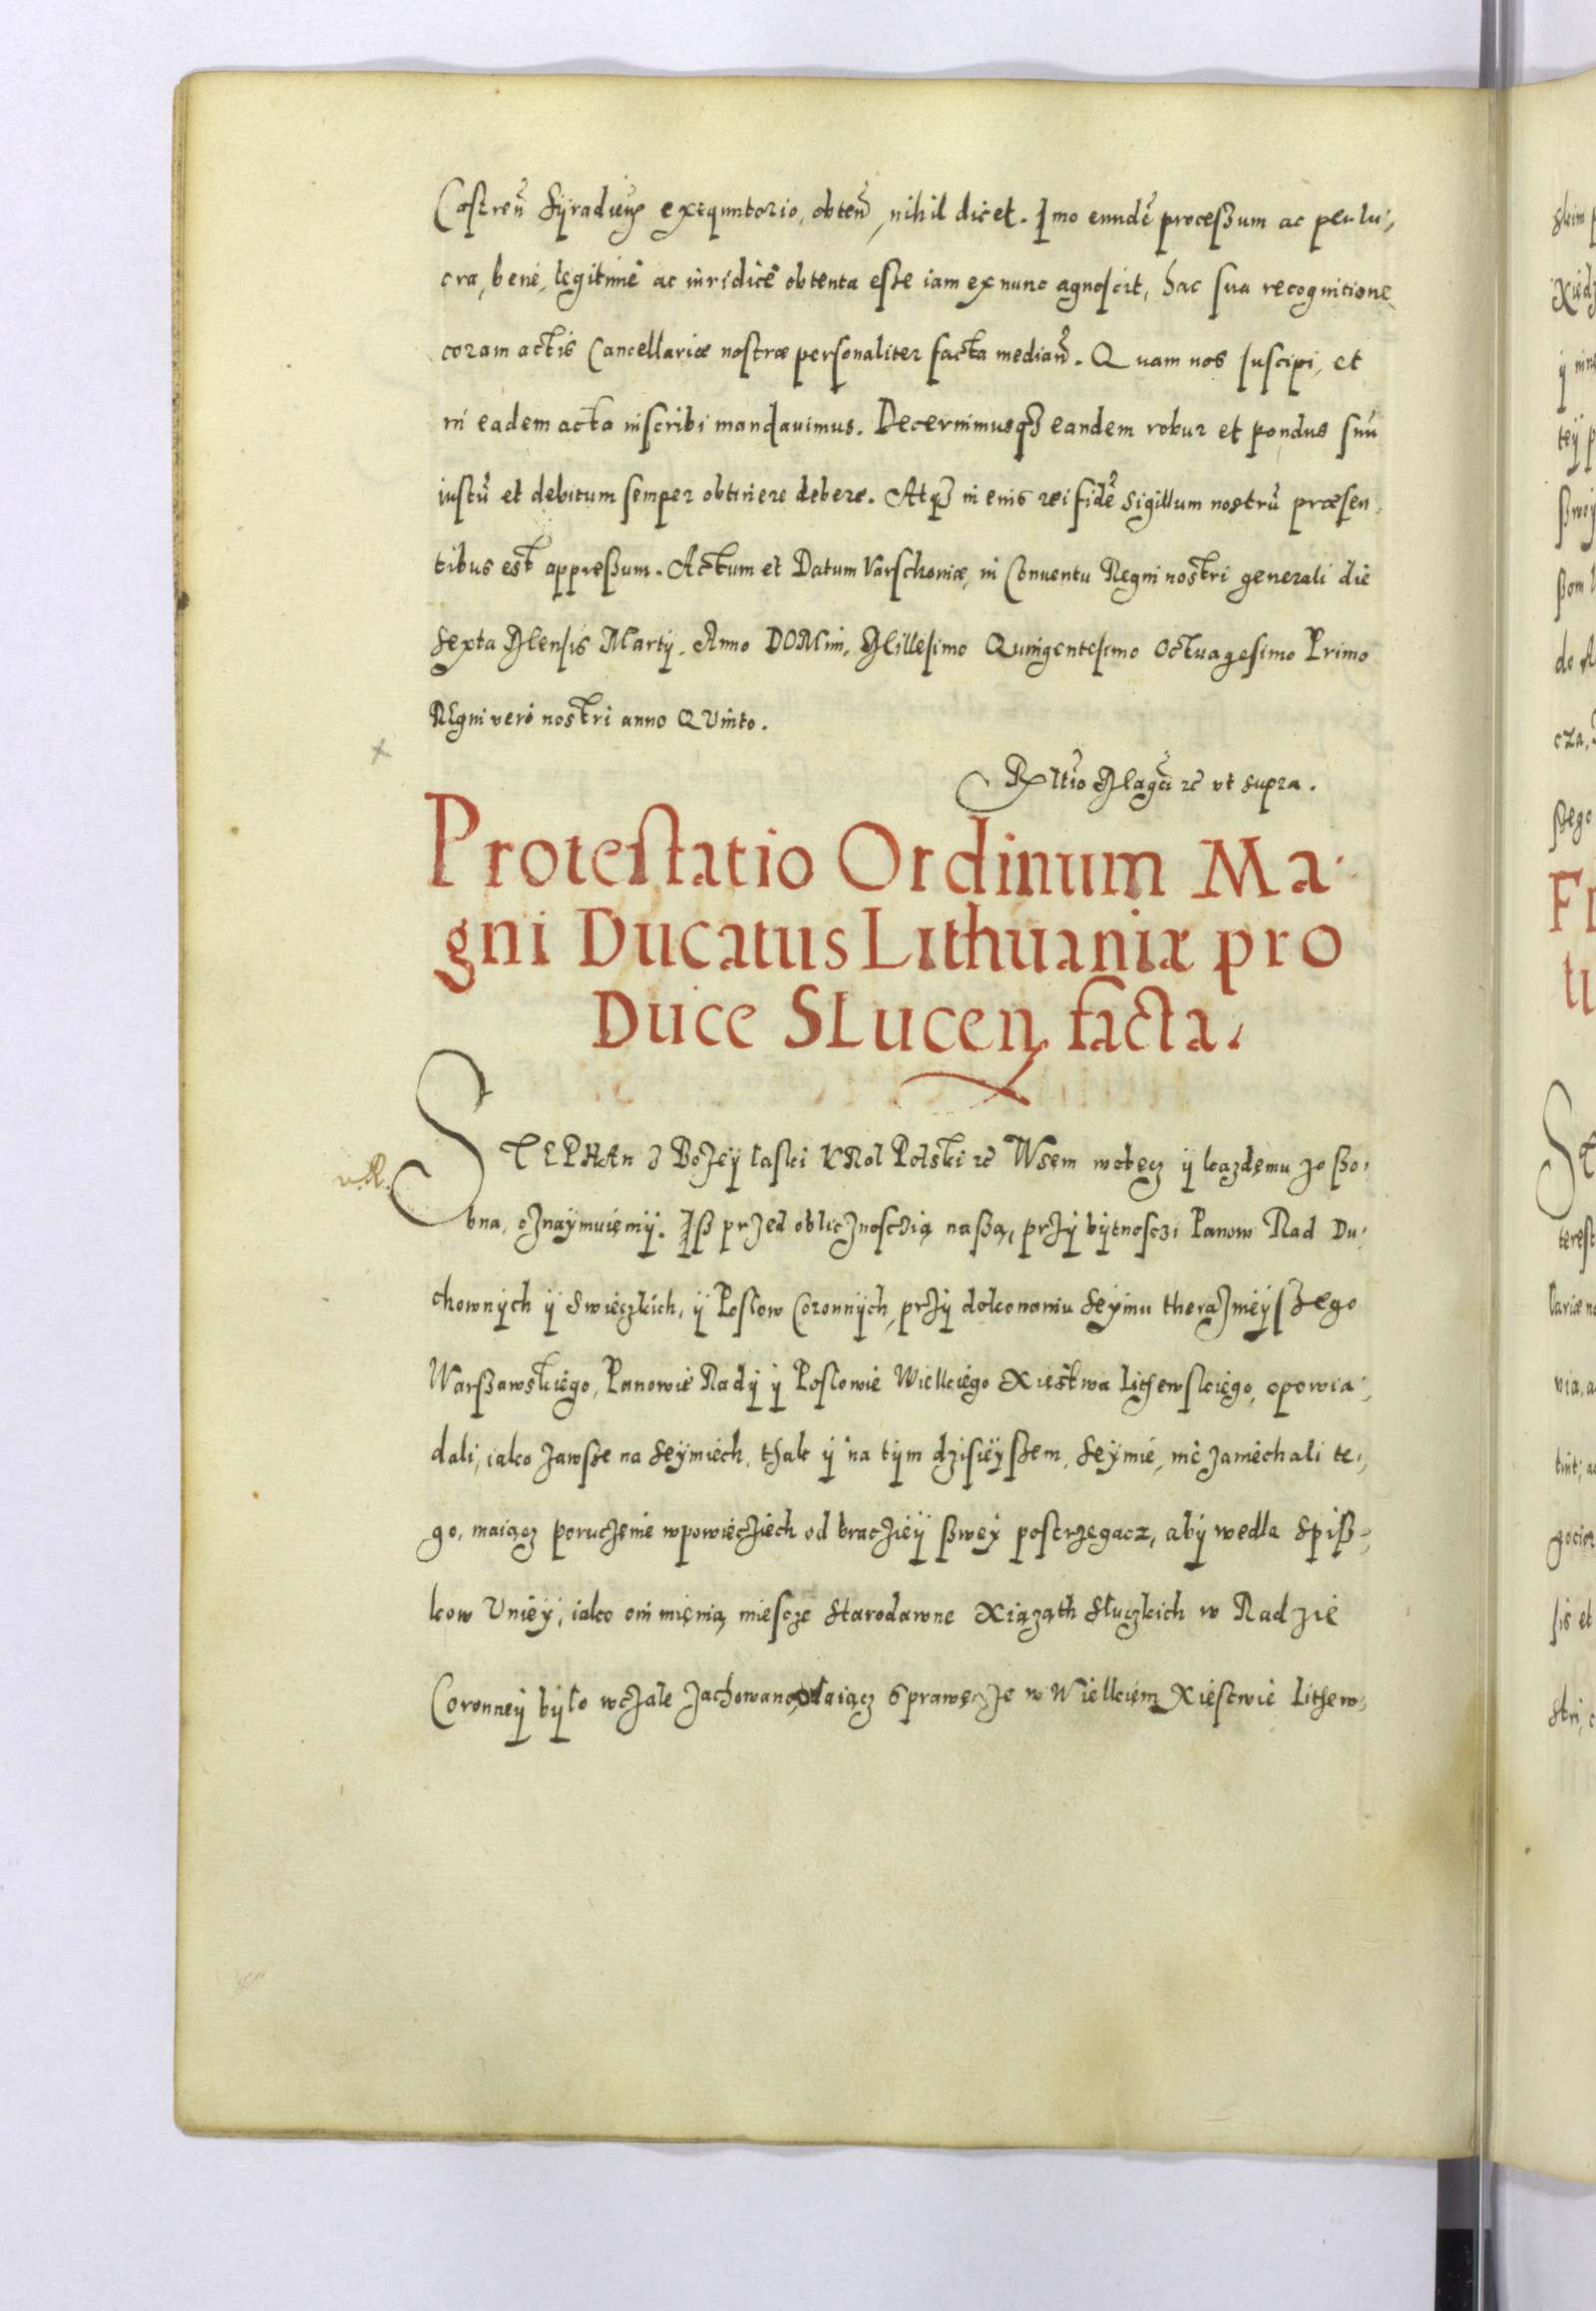 Castreñ Syradieñ exequutorio, obteñ, nihil dicet. Imo eundẽ proceßum ac per lu,
cra, bene, legitime ac iuridice obtenta esse iam ex nunc agnoscit, hac sua recognitione
coram actis Cancellariæ nostræ personaliter facta mediañ. Quam nos suscipi, et
in eadem acta inscribi mandauimus. Decernimusq3 eandem robur et pondus suũ
iustũ et debitum semper obtinere debere. Atq3 in eius rei fidẽ sigillum nostrũ præsen,
tibus est appreßum. Actum et Datum Varschouiæ, in Conuentu Regni nostri generali die
sexta Mensis Martij. Anno DOMini, Millesimo Quingentesimo Octuagesimo Primo
REgni vero nostri anno QVinto.
Rltio Magci rc vt supra.
Protestatio Ordinum Ma
gni Ducatus Lithuaniæ pro
Duce SLuceñ facta.
STEPHAn z Bozey laski KRol Polski rc Wsem wobecz ÿ kazdemu zo ßo,
v. R.
bna, oznaÿmuięmÿ. Iß przed oblicznosczią naßą, przÿ bÿtnosczi Panow Rad Du,
chownÿch ÿ Swieczkich, ÿ Poslow Coronnÿch, przÿ dokonaniu Seymu theraznieÿszego
Warßawskiego, Panowie Radÿ ÿ Poslowie Wielkiego Xięstwa Lithewskiego, opowia,
dali, iako zawsze na Seÿmiech, thak ÿ na tÿm dzisieÿszem, Seÿmie, niezaniechali te,
go, maiącz poruczenie wpowieczjech od braczieÿ ßweÿ postrzegacz, abÿ wedle Spiß,
kow Unieÿ, iako oni mienią miescze Starodawne Xiązath Słuczkich w Radzie
Coronneÿ bÿlo wczale zachowano, daiącz sprawę, ze w Wielkiem Xiestwie Lithew,